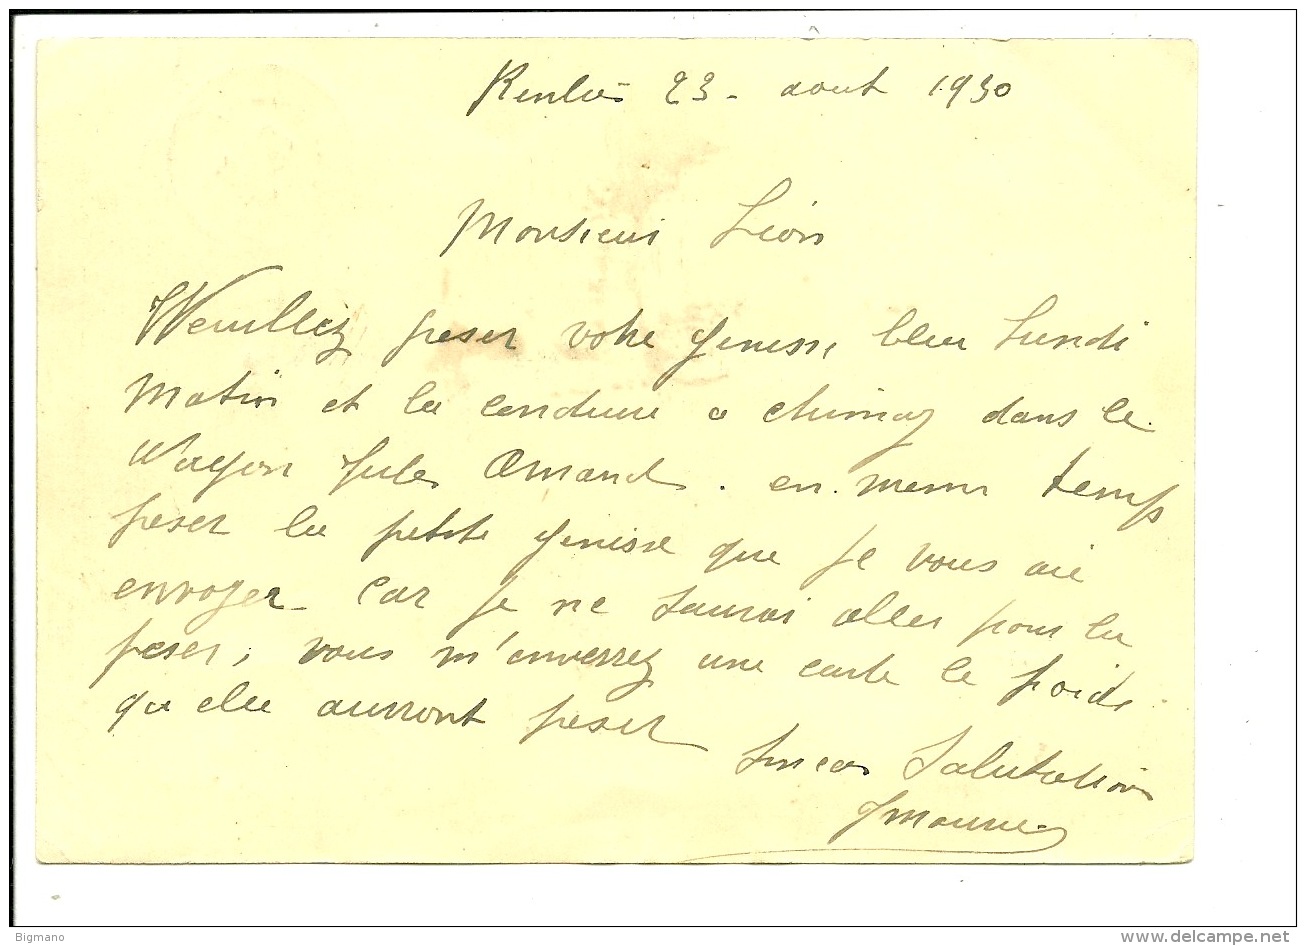 Renlies 23 - aout 1930
Monsieur Léon
Veuillez peser votre genisse bleu Lundi
matin et la conduire a chimay dans le
Wagon Jules Amand. en meme temps
peser la petite genisse que je vous aie
envoyer - car je ne saurai aller pour la
peser, vous m'enverrez une carte le poids
qu elle aurront peser
Salutations
Bigmano
www.delcampe.net